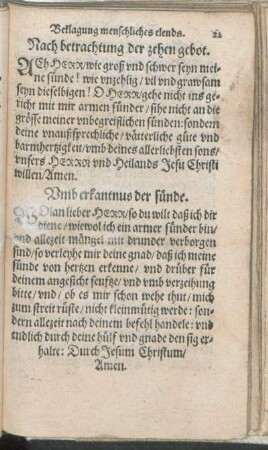 Beklagung menschliches elends. 22
Nach betrachtung der zehen gebot.
ACh HERR/ wie groß vnd schwer seyn mei-
ne sünde! wie vnzehlig/ vil vnd grawsam
seyn dieselbigen! O HERR/ gehe nicht ins ge-
richt mit mir armen sünder/ sihe nicht an die
grösse meiner vnbegreiflichen sünden: sondern
deine vnaußsprechliche/ vätterliche güte vnd
barmhertzigkeit/ vmb deines allerliebsten sons/
vnsers HERRN vnd Heilands Jesu Christi
willen/ Amen.
Vmb erkantnus der sünde.
WOlan lieber HERR/ so du wilt daß ich dir
diene/ wiewol ich ein armer sünder bin/
vnd allezeit mängel mit drunder verborgen
sind/ so verleyhe mir deine gnad/ daß ich meine
sünde von hertzen erkenne/ vnd drüber für
deinem angesicht seufftze/ vnd vmb verzeihung
bitte/ vnd/ ob es mir schon wehe thut/ mich
zum streit rüste/ nicht kleinmütig werde: son-
dern allezeit nach deinem befehl handele: vnd
endlich durch deine hülf vnd gnade den sig er-
halte: Durch Jesum Christum/
Amen.